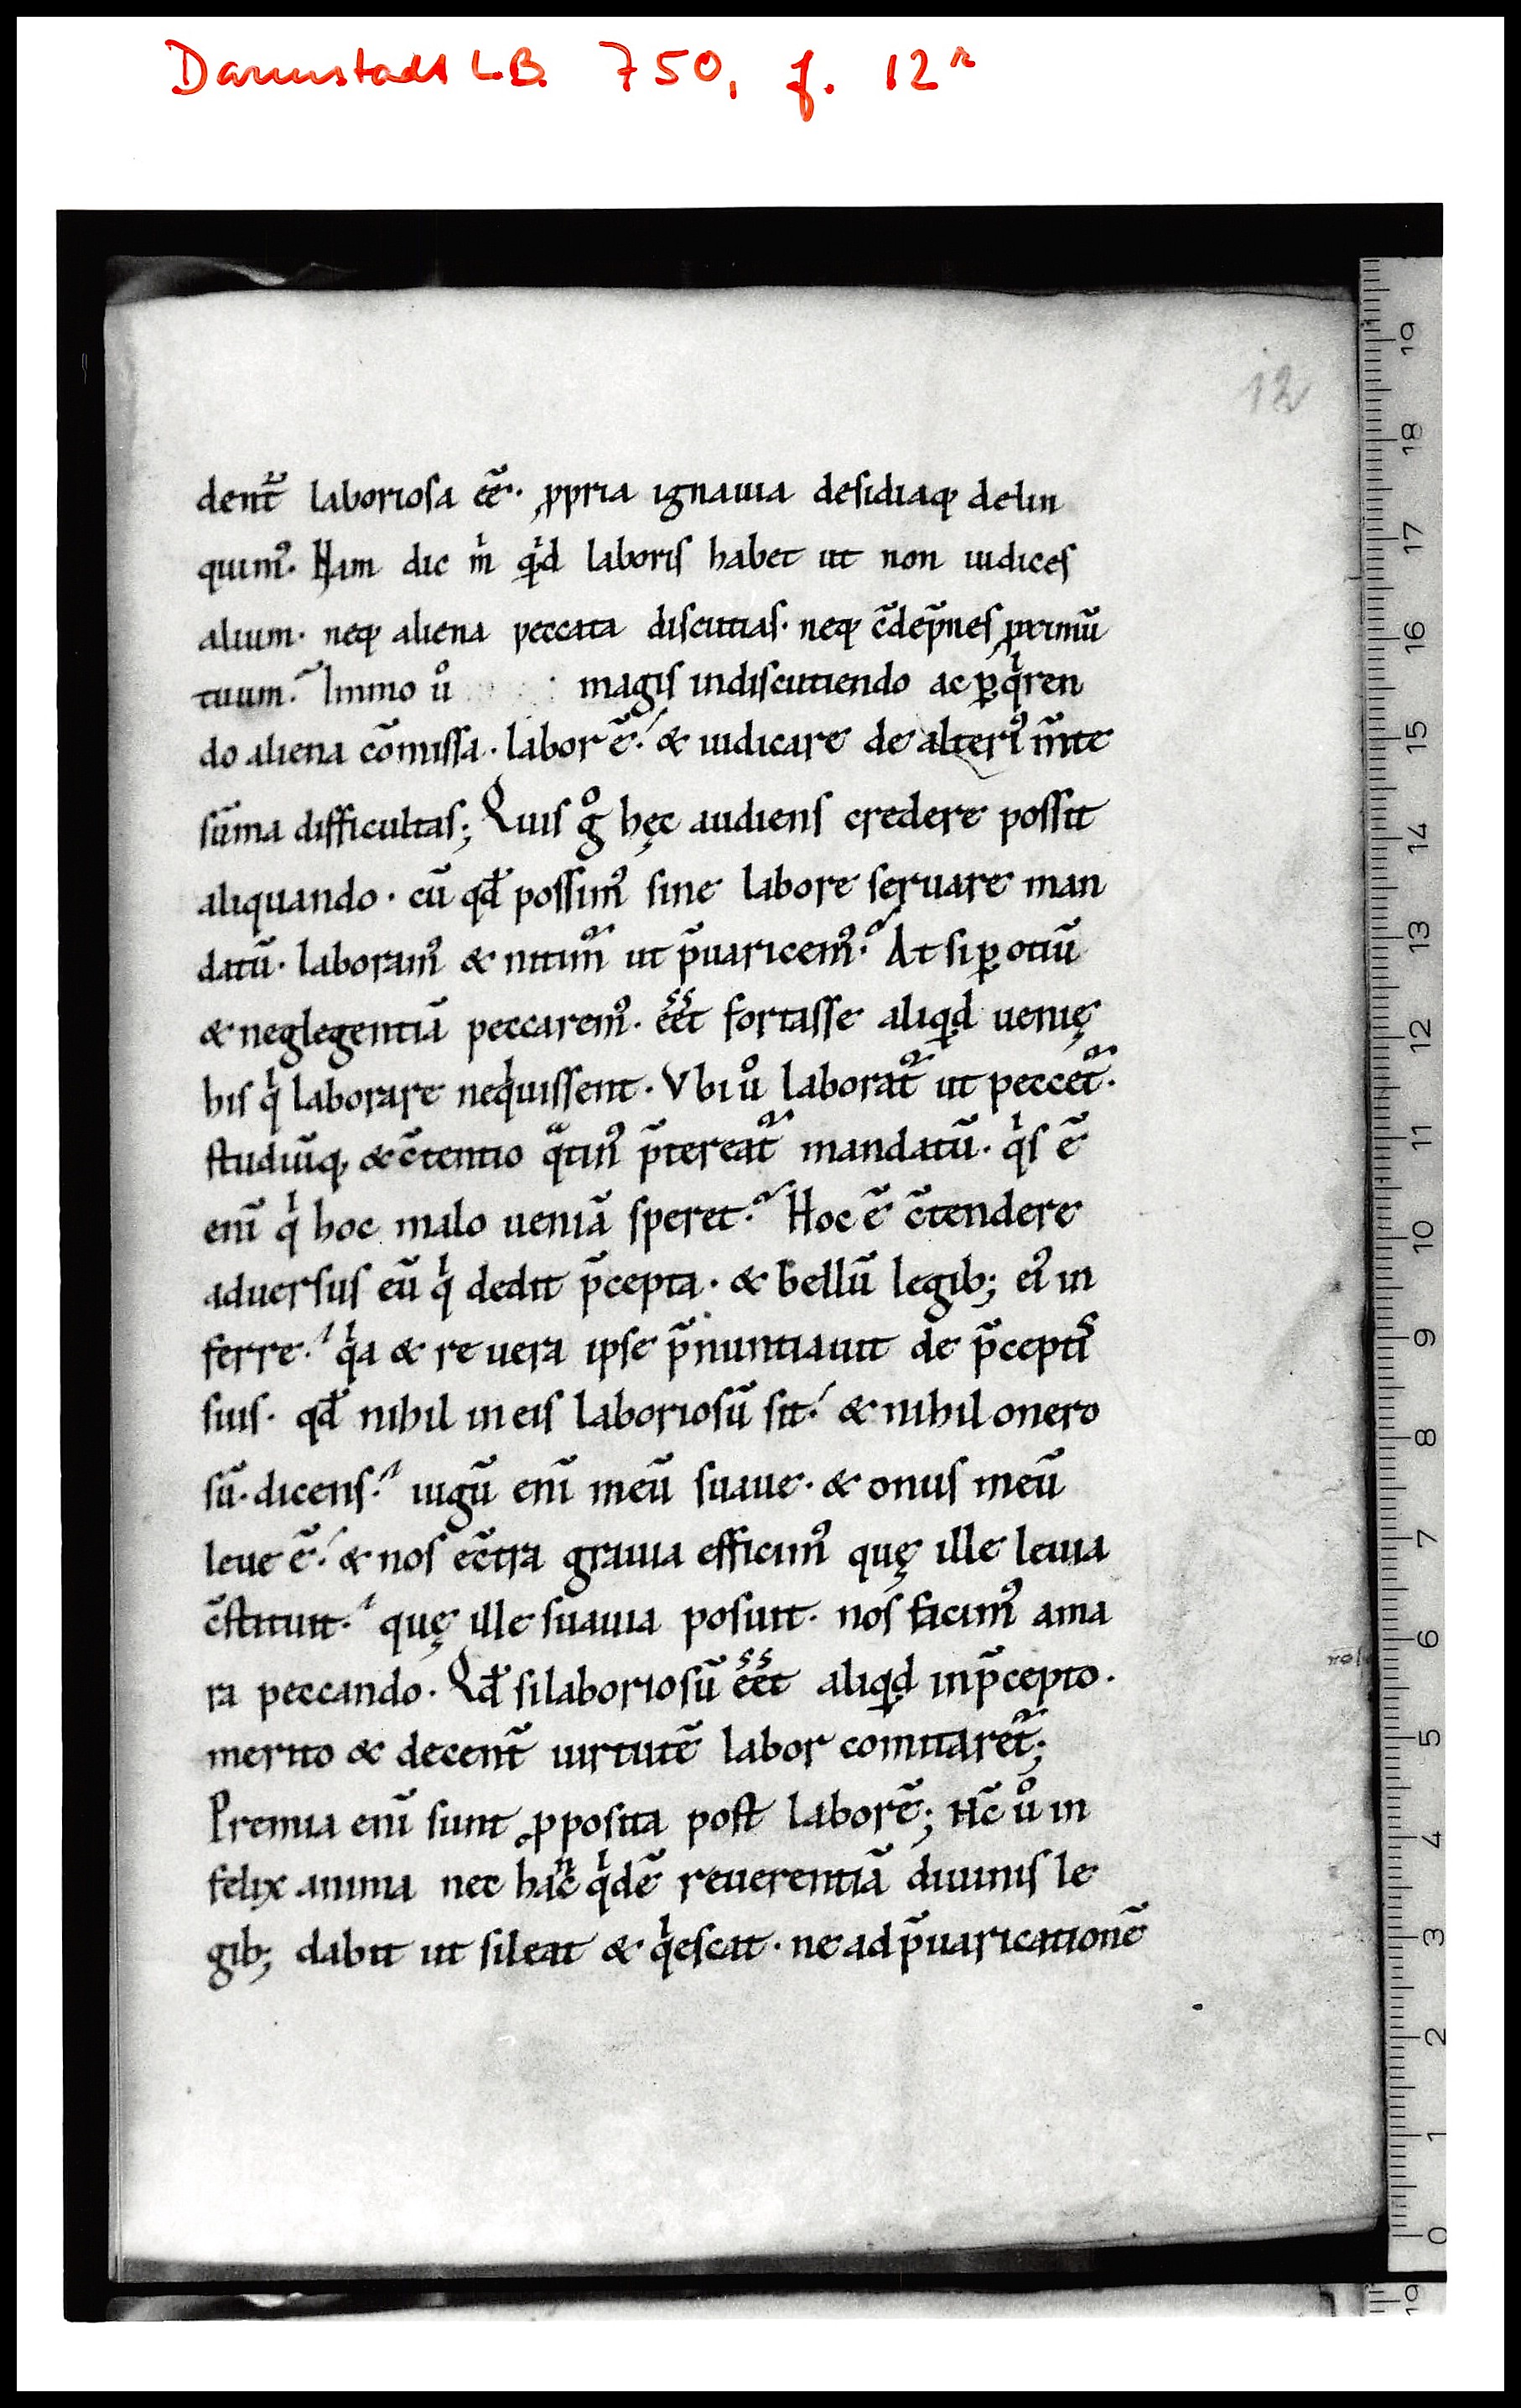 Darmstadt L.B. 750, f. 12r
12
dent̃ laboriosa eẽ· ꝓpria ignauia desidiaq; delin
quimꝰ· Nam dic mͥ qͥd laboris habet ut non iudices
alium· neq; aliena peccata discutias· neq; c̃dẽpnes ꝓximũ
tuum? Immo uͦ magis indiscutiendo ac ꝑqͥren
do aliena cõmissa· labor ẽ· & iudicare de alteriꝰ m̃te
sũma difficultas; Quis gͦ hęc audiens credere possit
aliquando· cũ qđ possimꝰ sine labore seruare man
datũ· laboramꝰ & nitim᷑ ut p̃uaricemꝰ? At si ꝑ otiũ
& neglegentiã peccaremꝰ· eẽt fortasse aliqͥd uenię
his qͥ laborare neqͥuissent· Vbi uͦ laborat᷑ ut peccet᷑·
studiũq; & c̃tentio qͣtinꝰ p̃tereat᷑ mandatũ· qͥs ẽ
enĩ qͥ hoc malo ueniã speret? Hoc ẽ c̃tendere
aduersus eũ qͥ dedit p̃cepta· & bellũ legib; eiꝰ in
ferre· qͥa & re uera ipse p̃nuntiauit de p̃ceptiˢ
suis· qđ nihil in eis laboriosũ sit· & nihil onero
sũ· dicens· iugũ enĩ meũ suaue· & onus meũ
leue ẽ· & nos ec̃tra grauia efficimꝰ quę ille leuia
c̃stituit· quę ille suauia posuit· nos facimꝰ ama
ra peccando· Qđ si laboriosũ eẽt aliqͥd in p̃cepto·
merito & decent̃ uirtutẽ labor comitaret᷑;
Premia enĩ sunt ꝓposita post laborẽ; Nc̃ uͦ in
felix anima nec hañc qͥdẽ reuerentiã diuinis le
gib; dabit ut sileat & qͥescat· ne ad p̃uaricationẽ
19
18
17
16
15
14
13
12
11
10
9
8
7
6
5
4
3
2
1
0
19